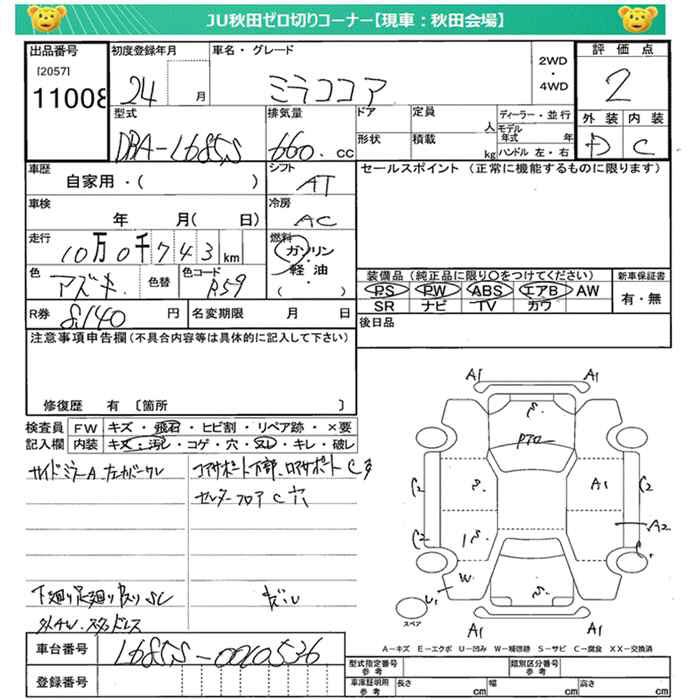 JU秋田ゼロ切りコーナー【現車：秋田会場】
出品番号 初度登録年月 車名・グレード 評価点
[2057]
11008 24 月 ミラココア 2WD・4WD 2
型式 排気量 ドア 定員 人 ディーラー・並行 外装 内装
DBA-L685S 660. cc 形状 積載 kg モデル年式 年 ハンドル 左・右 D C
車歴 シフト セールスポイント（正常に機能するものに限ります）
自家用・( ) AT
車検 冷房
年 月( 日) AC
走行 燃料
10万0千743km ガソリン・軽油・( )
色 色替 色コード 装備品（純正品に限り○をつけてください） 新車保証書
アズキ R59 PS PW ABS エアB AW 有・無
SR ナビ TV カワ
R券 8,140円 名変期限 月 日 後日品
注意事項申告欄(不具合内容等は具体的に記入して下さい)
修復歴 有 〔箇所 〕
検査員記入欄 FW キズ・飛石・ヒビ割・リペア跡・×要
内装 キズ・汚レ・コゲ・穴・スレ・キレ・破レ
サイドミラーA
コアサポート下部、ロアサポートC
センターフロアC穴
下廻り足廻り
スタッドレス
A1 A1
S
PTO
C2 S A1 C2
A2
C2 S
W
S
スペア
A1 A1
A－キズ E－エクボ U－凹み W－補修跡 S－サビ C－腐食 XX－交換済
車台番号 L685S-0010536
登録番号
型式指定番号 参考 類別区分番号 参考
車庫証明用 参考 長さ cm 幅 cm 高さ cm